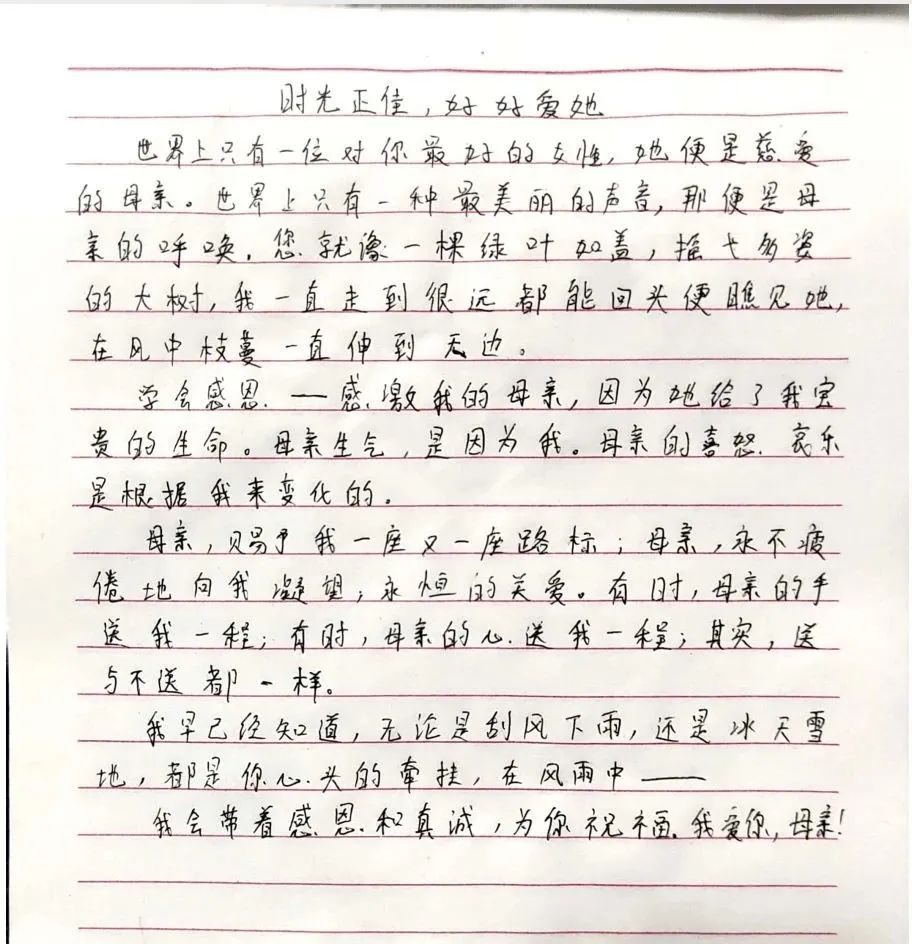 时光正佳，好好爱她
世界上只有一位对你最好的女性，她便是慈爱
的母亲。世界上只有一种最美丽的声音，那便是母
亲的呼唤。您就像一棵绿叶如盖，摇弋多姿
的大树，我一直走到很远都能回头便瞧见她，
在风中枝蔓一直伸到无边。
学会感恩——感激我的母亲，因为她给了我宝
贵的生命。母亲生气，是因为我。母亲的喜怒哀乐
是根据我来变化的。
母亲，赐予我一座又一座路标；母亲，永不疲
倦地向我凝望；永恒的关爱。有时，母亲的手
送我一程；有时，母亲的心送我一程；其实，送
与不送都一样。
我早已经知道，无论是刮风下雨，还是冰天雪
地，都是你心头的牵挂，在风雨中——
我会带着感恩和真诚，为你祝福。我爱你，母亲！